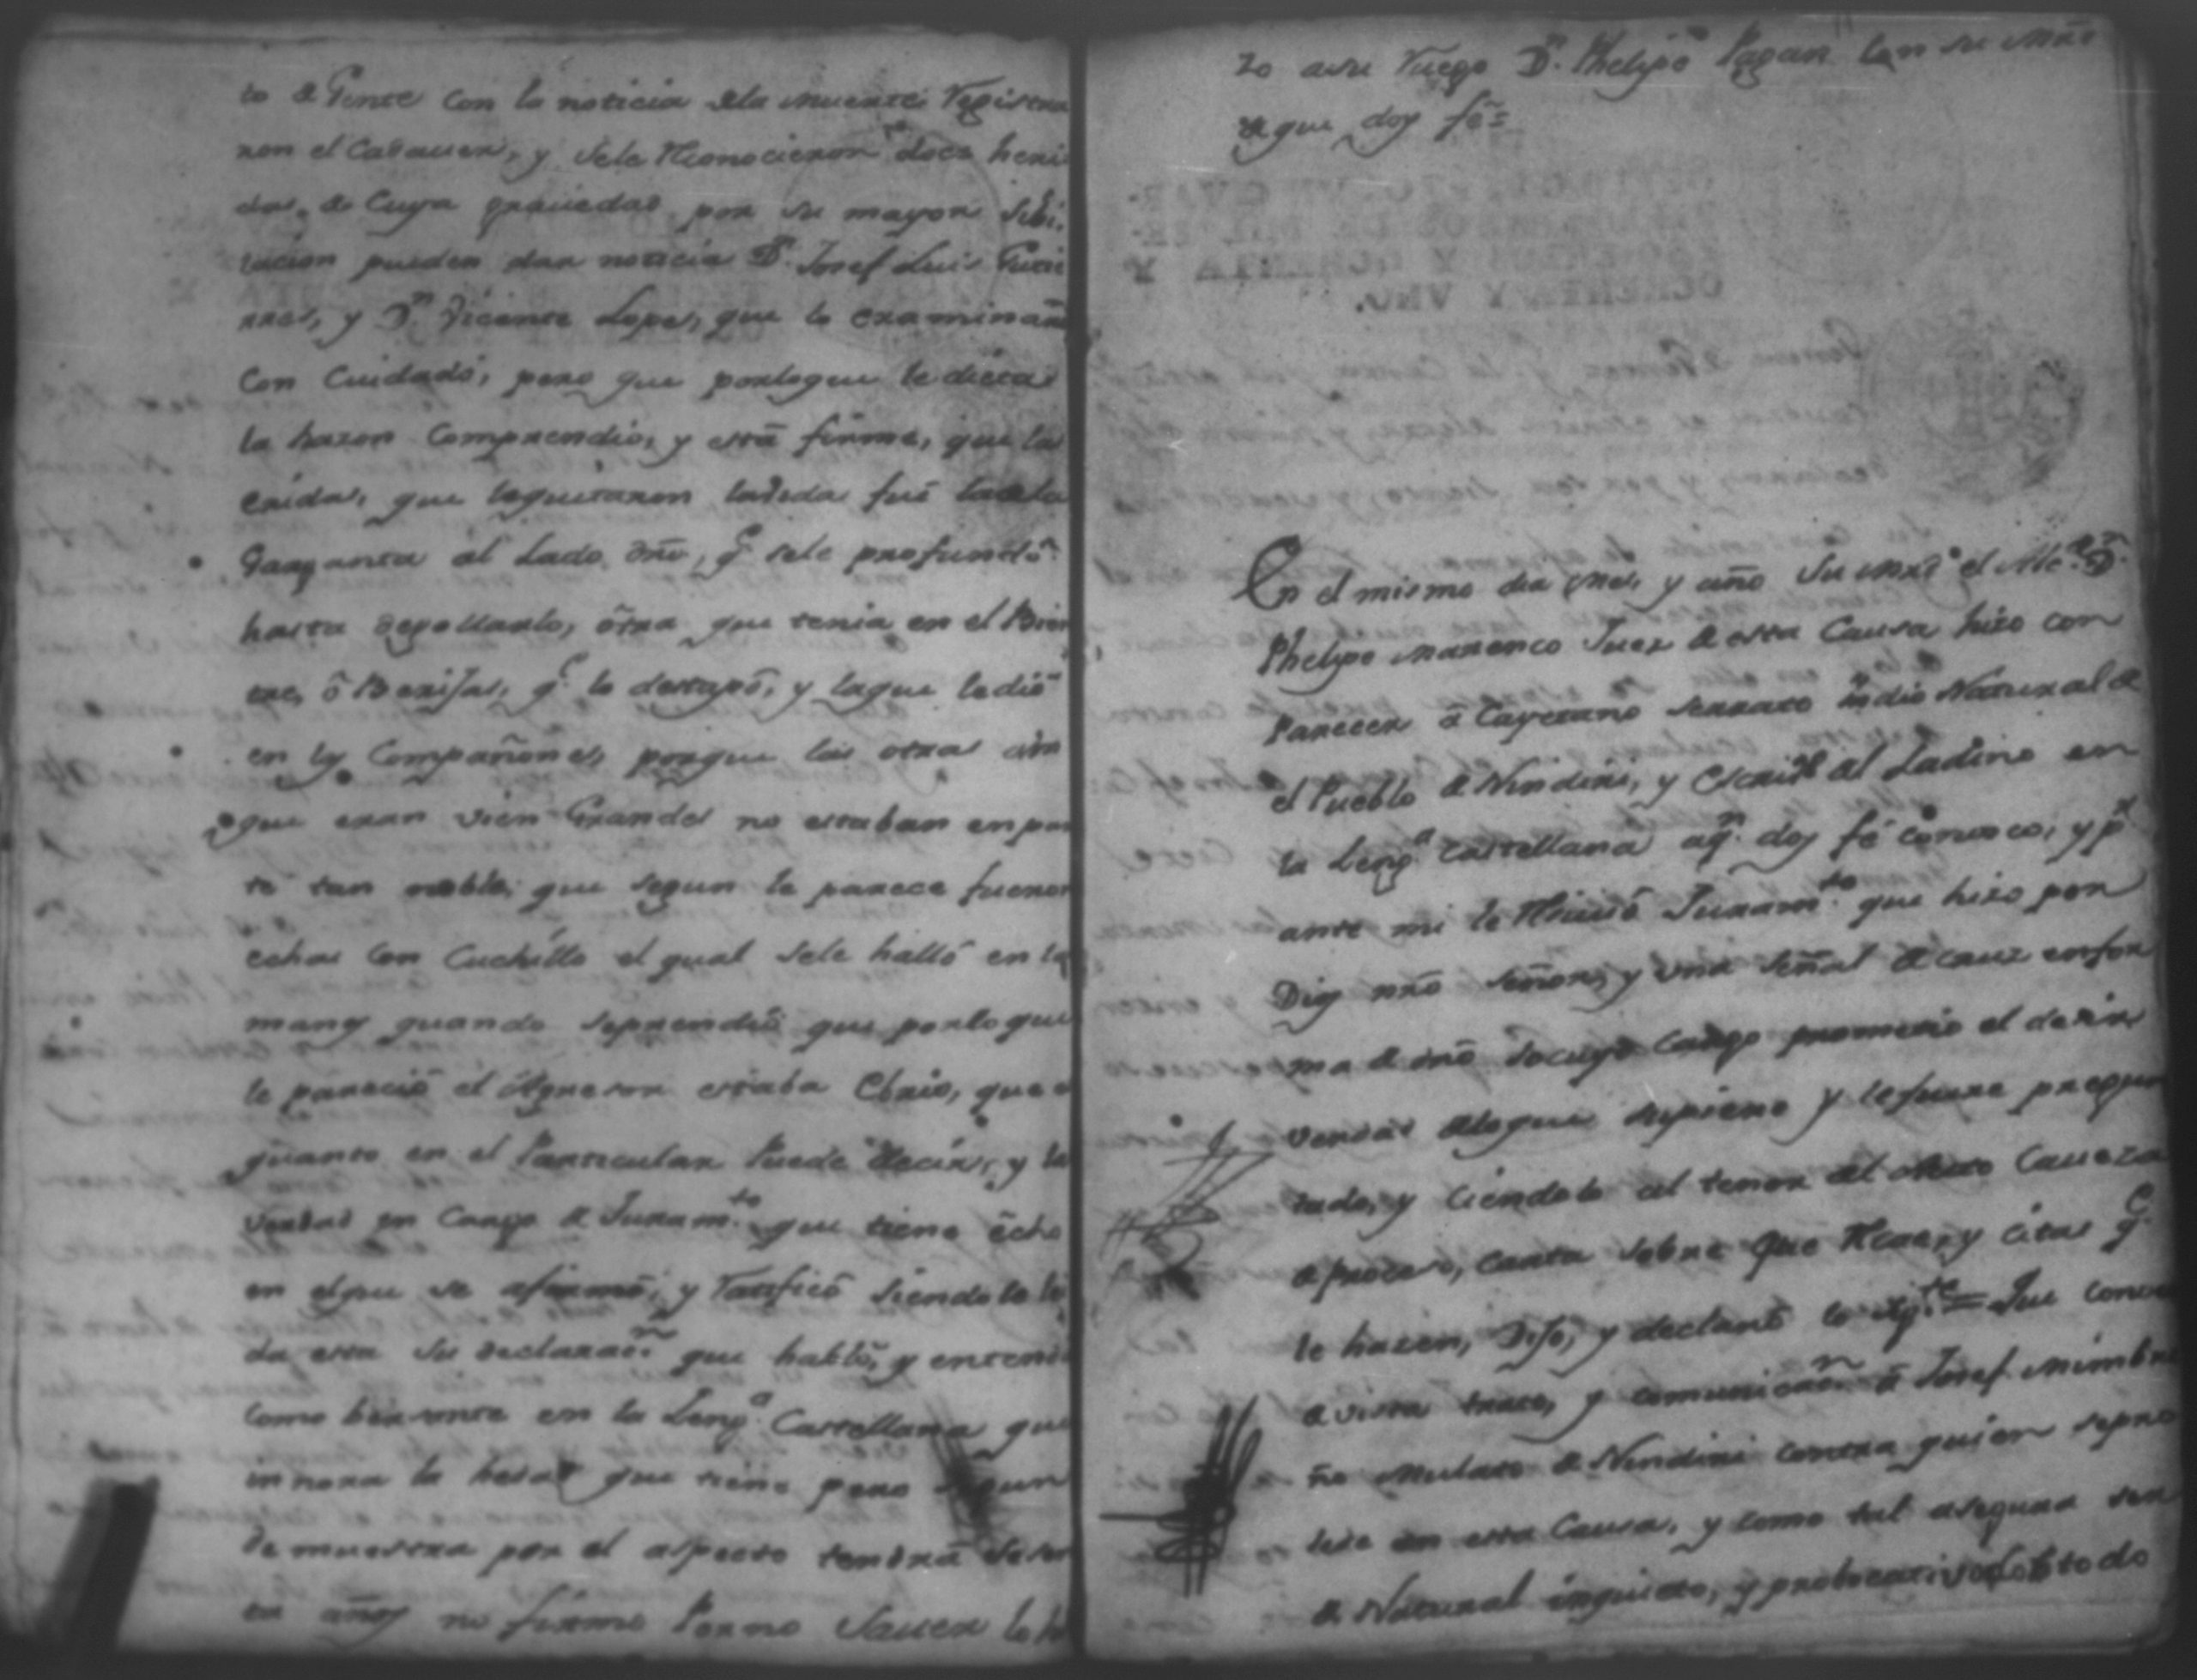 to de Gente con la noticia dela muerte Vegistra
ron el Cadauer, y sele Reconocieron doce heri
das, de Cuya grauedad por su mayor
pueden dar noticia Dn. Josef Luis Gutie
rres, y Dn. Vicente Lopes, que lo examinarn
Con Cuidado, pero que porloque le dicta
la hazon Comprendio, y està firme, que la
erida, que lequitaron lavida fuè la dela
Garganta al Lado dro, q.e sele profundò
hasta degollarlo, ôtra que tenia en el Bien
tre, ô Berijas, q.e lo destapò, y laque le diò
en los Compañones, porque las otras aun
que eran vien Grandes no estaban en par
te tan noble, que segun le parece fueron
echas con Cuchillo el qual sele hallò en la
manos quando seprendiò que porloque
le pareciò el Agresor estaba Ebrio, que
quanto en el Particular Puede decir, y la
verdad en Cargo de Juram.to que tiene êcho
en elque se afirmò, y Ratificò siendole lei
da esta su declarac.n que hablò, y entend
como bastante en la Leng.a Castellana que
innora la hedad que tiene pero segun
demuestra por el aspecto tendrà seten
ta años no firmò Porno Sauer lo hi
zo asu Ruego Dn. Phelipe Pagan con su Mrd
de que doy fè=
En el mismo dia mes, y año su Mrd el Alc.e Dn.
Phelipe Marenco Juez de esta Causa hizo com
Parecer â Cayetano Serrato indio Natural de
el Pueblo de Nindiri, y al Ladino en
la Leng.a Castellana aq.n doy fè conosco, y p.r
ante mi le Reciuiò Juram.to que hizo por
Dios nro Señor, y una señal de cruz enfor
ma de dro socuyo Cargo prometio el desir
verdad deloque supiere y lefuere pregun
tado, y siendolo al tenor del Auto Caueza
de proceso, carta sobre que Recae, y citas q.e
le hazen, Dijo, y declarò lo sig.te = Que conoce
de vista trato, y comunicac.n â Josef Mimbre
ño Mulato de Nindiri contra quien sepro
sede en esta Causa, y como tal asegura ser
de Natural inquieto, y probocativo todo